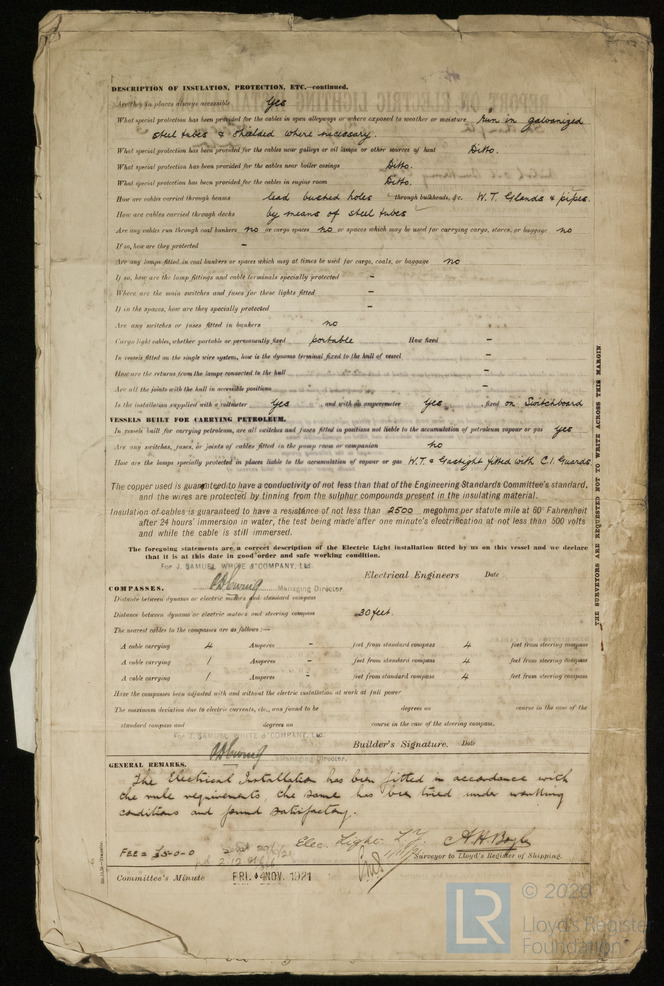 DESCRIPTION OF INSULATION, PROTECTION, ETC.—continued.
Are they in places always accessible Yes
What special protection has been provided for the cables in open alleyways or where exposed to weather or moisture Run in galvanized
steel tubes & shielded where necessary.
What special protection has been provided for the cables near galleys or oil lamps or other sources of heat Ditto.
What special protection has been provided for the cables near boiler casings Ditto.
What special protection has been provided for the cables in engine room Ditto.
How are cables carried through beams lead bushed holes through bulkheads, &c. W.T. Glands & pipes.
How are cables carried through decks by means of steel tubes
Are any cables run through coal bunkers no or cargo spaces no or spaces which may be used for carrying cargo, stores, or baggage no
If so, how are they protected –
Are any lamps fitted in coal bunkers or spaces which may at times be used for cargo, coals, or baggage no
If so, how are the lamp fittings and cable terminals specially protected –
Where are the main switches and fuses for these lights fitted –
If in the spaces, how are they specially protected –
Are any switches or fuses fitted in bunkers no
Cargo light cables, whether portable or permanently fixed portable How fixed –
In vessels fitted on the single wire system, how is the dynamo terminal fixed to the hull of vessel –
How are the returns from the lamps connected to the hull –
Are all the joints with the hull in accessible positions –
Is the installation supplied with a voltmeter Yes , and with an amperemeter Yes , fixed on Switchboard
VESSELS BUILT FOR CARRYING PETROLEUM.
In vessels built for carrying petroleum, are all switches and fuses fitted in positions not liable to the accumulation of petroleum vapour or gas yes
Are any switches, fuses, or joints of cables fitted in the pump room or companion no
How are the lamps specially protected in places liable to the accumulation of vapour or gas W.T. & Gastight fitted with C.I. Guards.
The copper used is guaranteed to have a conductivity of not less than that of the Engineering Standards Committee's standard,
and the wires are protected by tinning from the sulphur compounds present in the insulating material.
Insulation of cables is guaranteed to have a resistance of not less than 2500 megohms per statute mile at 60° Fahrenheit
after 24 hours' immersion in water, the test being made after one minute's electrification at not less than 500 volts
and while the cable is still immersed.
The foregoing statements are a correct description of the Electric Light installation fitted by us on this vessel and we declare
that it is at this date in good order and safe working condition.
For J. SAMUEL WHITE & COMPANY, Ltd.
Managing Director. Electrical Engineers Date
COMPASSES.
Distance between dynamo or electric motors and standard compass
Distance between dynamo or electric motors and steering compass 30 feet.
The nearest cables to the compasses are as follows:—
A cable carrying 4 Amperes – feet from standard compass 4 feet from steering compass
A cable carrying 1 Amperes – feet from standard compass 4 feet from steering compass
A cable carrying 1 Amperes – feet from standard compass 4 feet from steering compass
Have the compasses been adjusted with and without the electric installation at work at full power
The maximum deviation due to electric currents, etc., was found to be degrees on course in the case of the
standard compass and degrees on course in the case of the steering compass.
For J. SAMUEL WHITE & COMPANY, Ltd.
Managing Director. Builder's Signature. Date
GENERAL REMARKS.
The Electrical Installation has been fitted in accordance with
the rule requirements the same has been tried under working
conditions and found satisfactory.
Elec. Light
FEE = £5-0-0
Surveyor to Lloyd's Register of Shipping.
Committee's Minute FRI. 4 NOV. 1921
THE SURVEYORS ARE REQUESTED NOT TO WRITE ACROSS THIS MARGIN
LR
© 2020
Lloyd's Register
Foundation